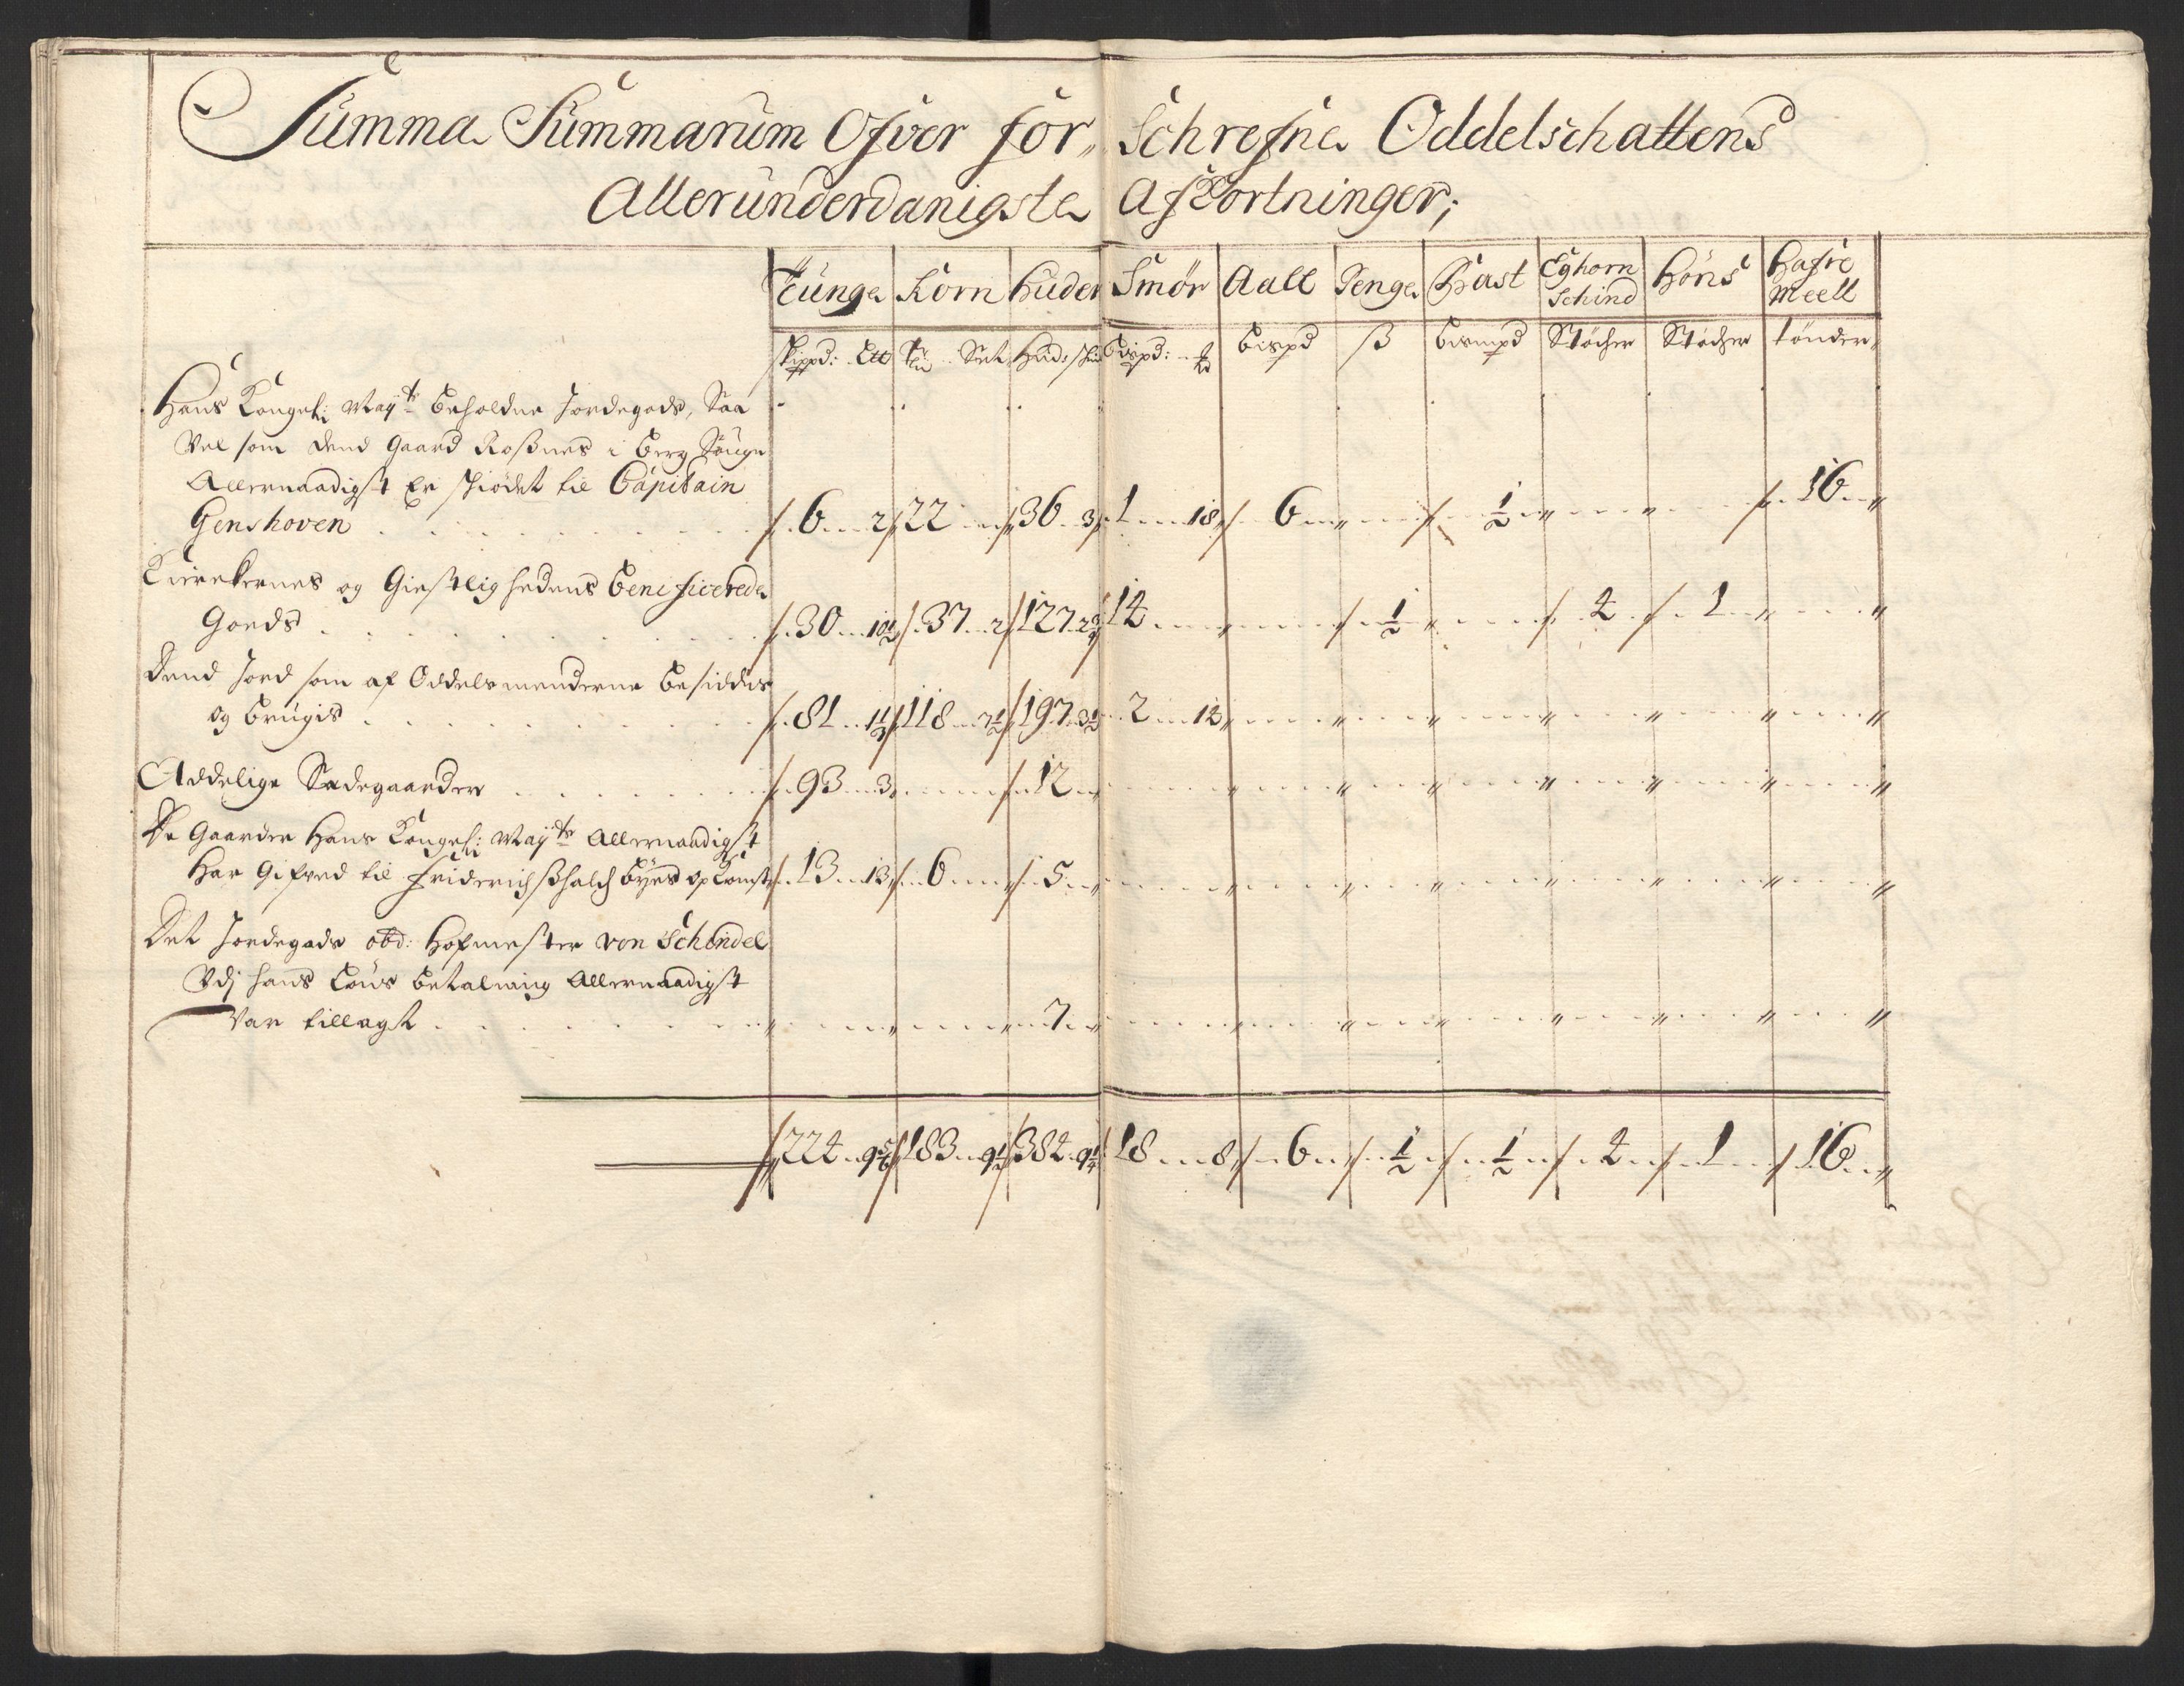 Summa Summarum Ofver for„ Schrefne Oddelschattens
Allerunderdanigste Afkortninger;
Tunge Korn Huder Smør Aall Penge Ghorn Schind Høns Hafre Meell
Skippd: Lbd Tdr Set Hud, Skind bispd: bispd ß bismpd Støcher Støcher tønder
Hans Kongel: May:ts beholdne Jordegods, Saa
Vel som dend Gaard Roßnes i Berg Sougn
Allernaadigst Er skiødet til Capitain
Genshoven 6 2 22 36 3 1 18 6 1/2 16
Kirckernes og Giestlighedens benificerede
Goeds 30 10 1/2 37 2 127 2 3/4 14 1/2 4 1
Dend Jord som af Oddelsmenderne besiddes
og brugis 81 11 1/3 118 7 1/2 197 3 1/2 2 14
Addelige Sædegaarder 93 3 12
De Gaarder Hans Kongel: May:ts Allernaadigst
Har Gifved til Friderichßhalds Byes opkomst 13 13 6 5
Det Jordegods obd: Hofmester von Schøndel
Vdj hans betalning Allernaadigst
Var tillagt 7
224 9 5/6 183 9 1/2 384 9 1/4 18 8 6 1/2 1/2 4 1 16